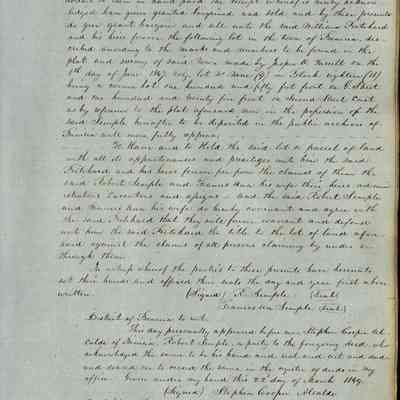 dollars to them in hand paid the receipt whereof is hereby acknow-
ledged have given granted bargained and sold and by these presents
do give grant bargain and sell unto the said William Pritchard
and his heirs forever the following lot in the town of Francisca, des-
cribed according to the marks and numbers to be found in the
plat and survey of said Town made by Jasper O'Farrell on the
day of June 1847 viz, lot No Nine (9) in Block eighteen (18)
being a corner lot one hundred and fifty feet front on C Street
and one hundred and twenty five front on Second Street East
as by reference to the plat aforesaid now in the possession of the
said Semple hereafter to be deposited in the public archives of
will more fully appear;
To Have and to Hold the said lot or parcel of land
with all its appurtenances and privileges unto him the said
Pritchard and his heirs forever free from the claims of them the
said Robert Semple and Frances Ann his wife their heirs admin-
istrators Executors and assigns - and the said Robert Semple
and Frances Ann his wife do hereby covenant and agree with
the said Pritchard that they will forever warrant and defend
unto him the said Pritchard the title to the lot of land afore-
said against the claims of all persons claiming by under or
through them.
In witness whereof the parties to these presents have hereunto
set their hands and affixed their seals the day and year first above
written. (Signed) R. Semple (Seal)
Frances Ann Semple (Seal)
District of to wit.
This day personally appeared before me Stephen Cooper Al-
calde of Robert Semple, a party to the foregoing deed who
acknowledged the same to be his hand and seal and act and deed
and desired me to record the same in the register of deeds in my
office. Given under my hand this 22d day of March 1849.
(Signed) Stephen Cooper Alcalde